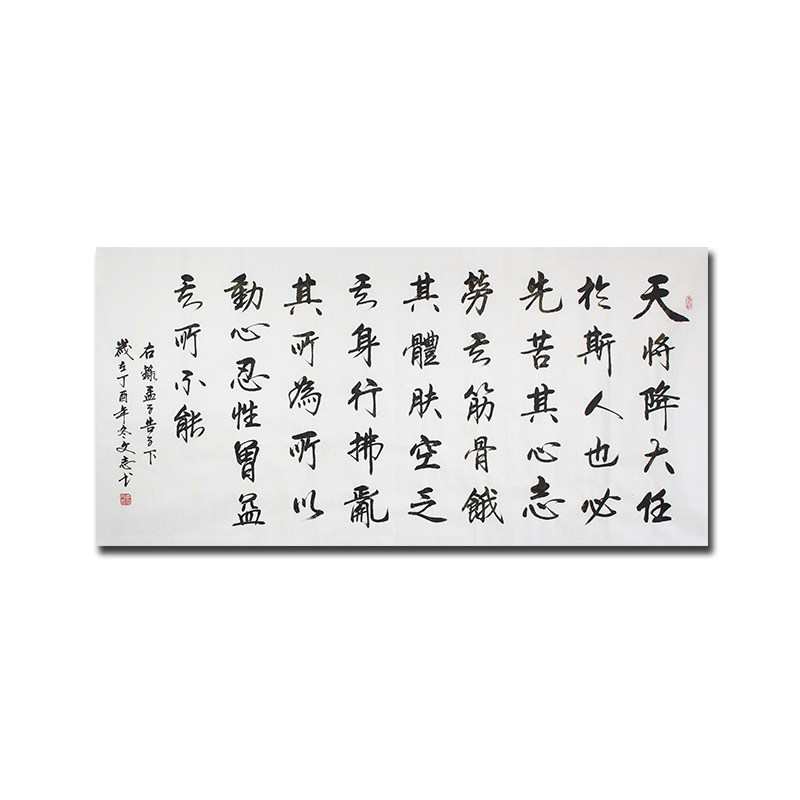 天將降大任
於斯人也必
先苦其心志
勞其筋骨餓
其體膚空乏
其身行拂亂
其所為所以
動心忍性曾益
其所不能
右錄孟子告子下
歲在丁酉年冬文志書